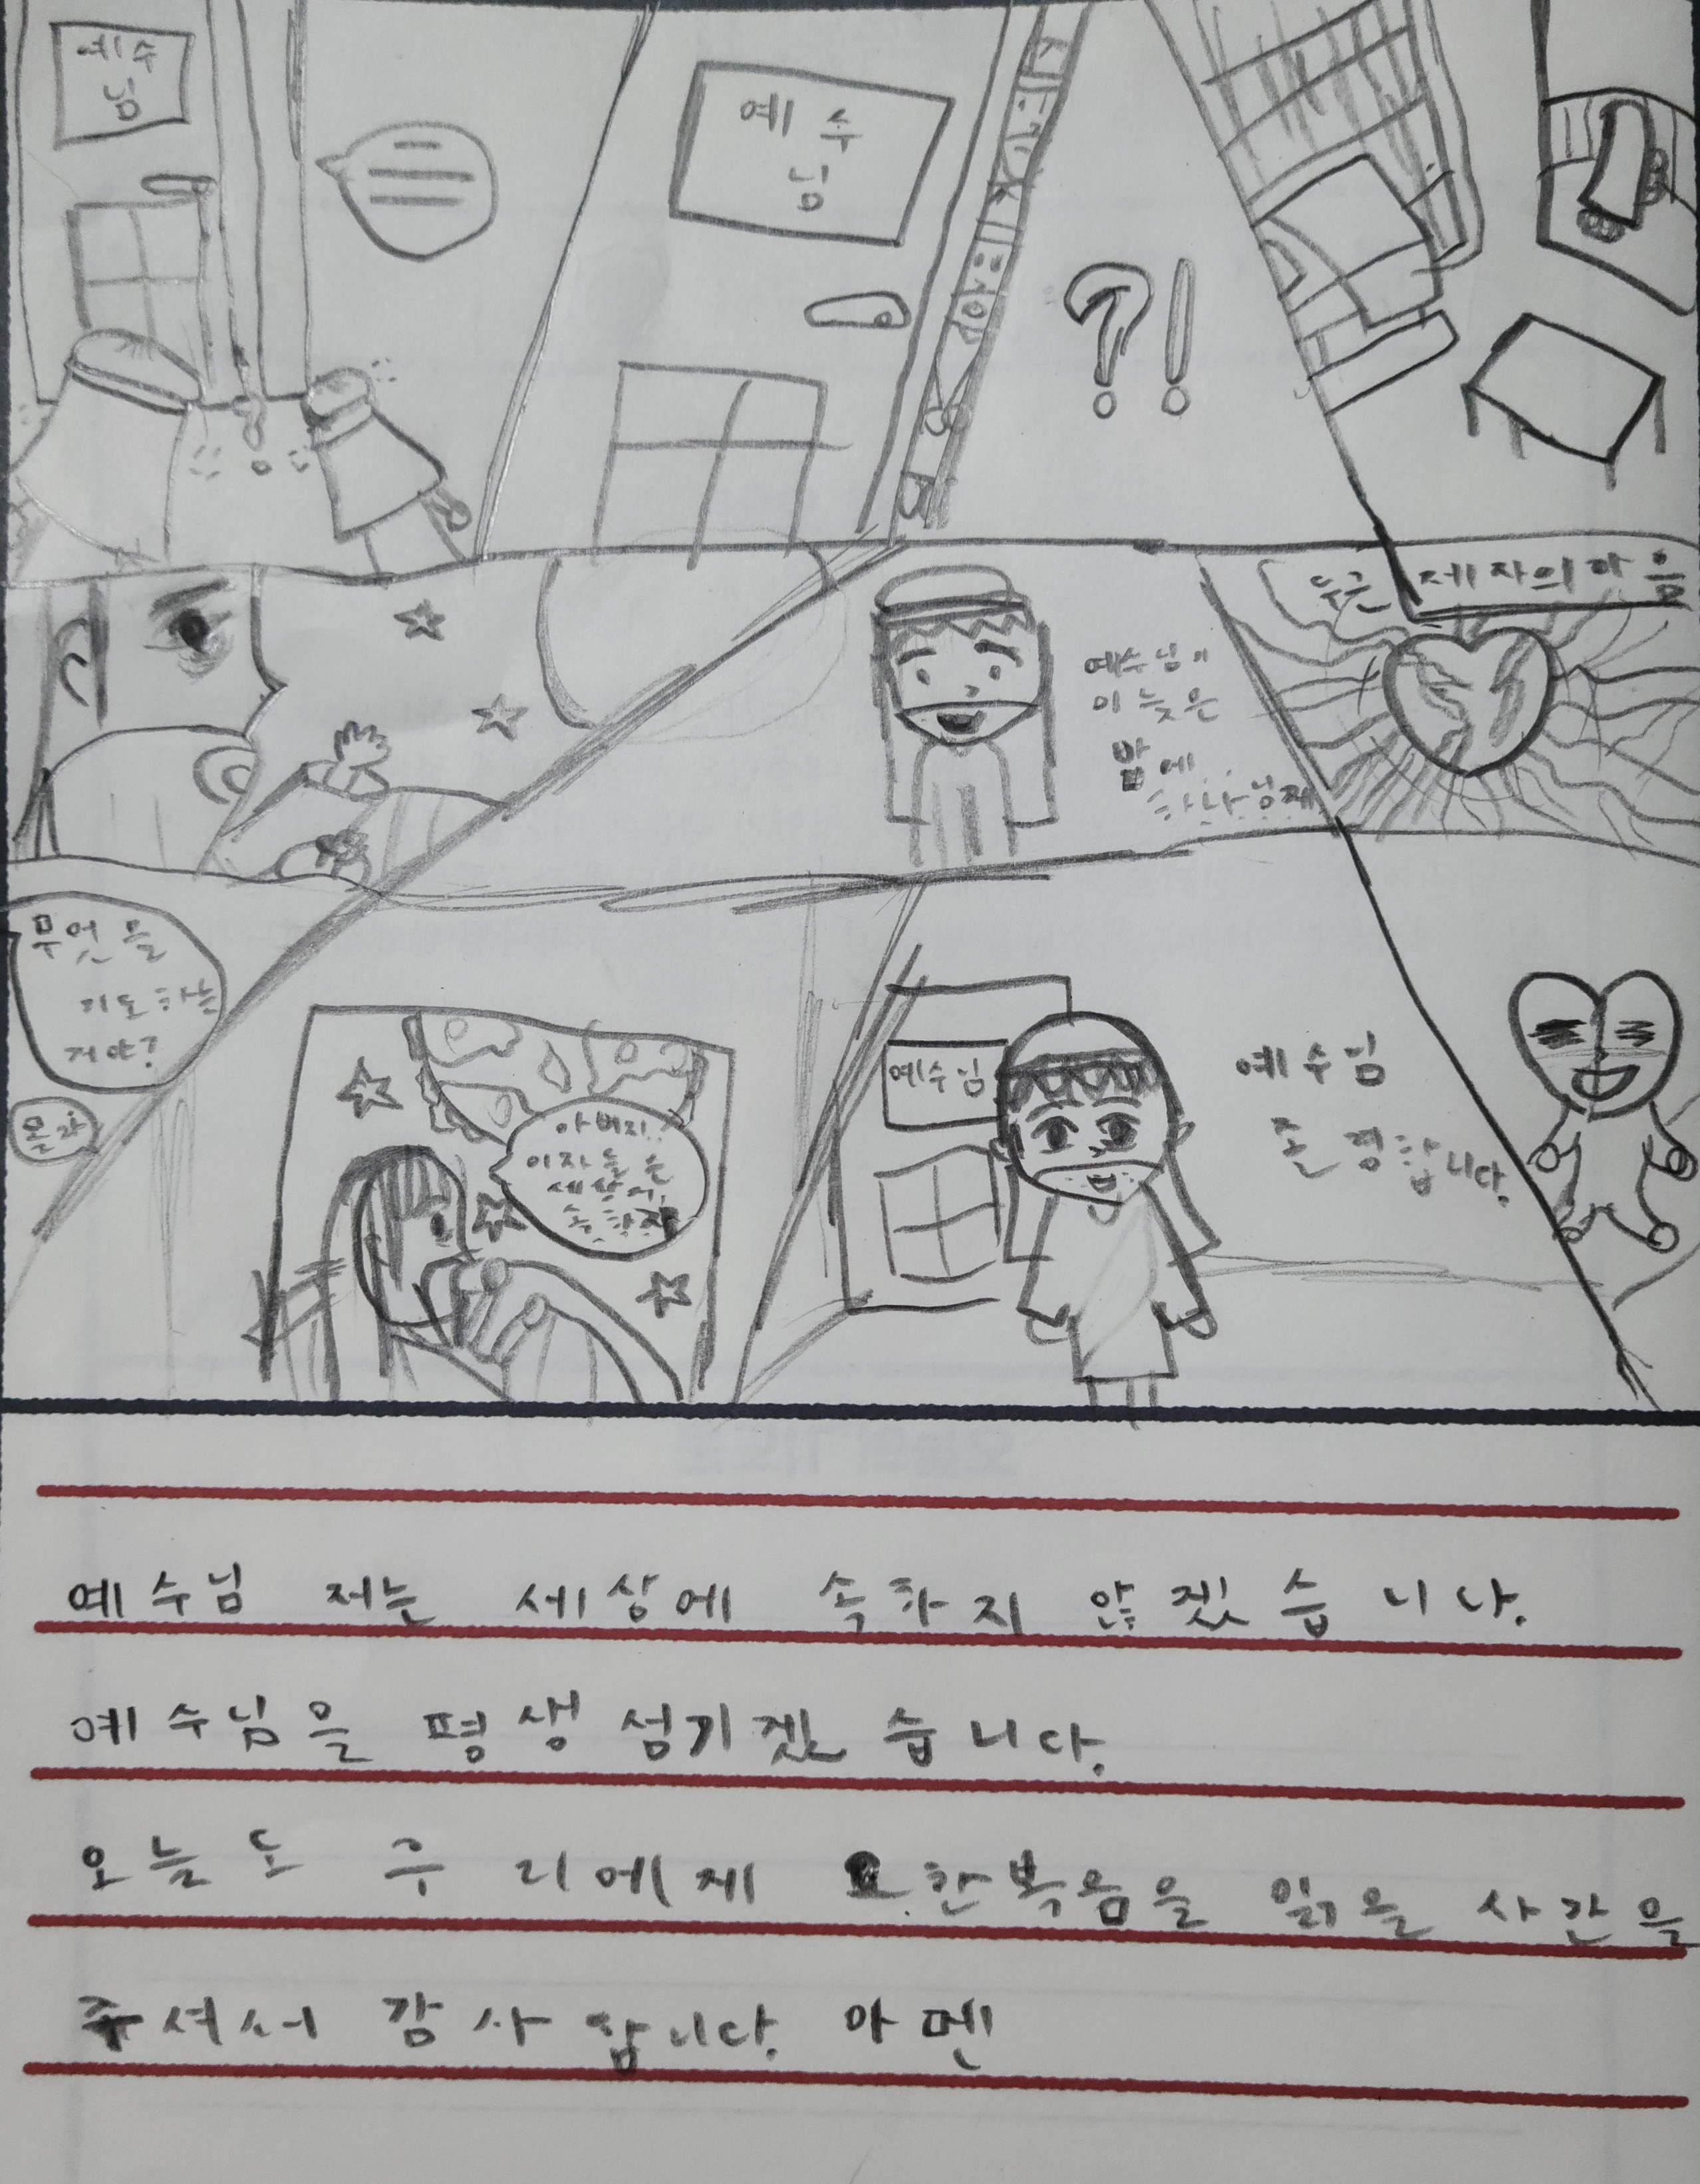 예수
님
예수
님
?!
두근 제자의 마음
예수님이
이 늦은
밤에..
하나님께
무엇을
기도하는
거야?
몰라
아버지..
이자들은
세상에
속하지
예수님
예수님
존경합니다.
예수님 저는 세상에 속하지 않겠습니다.
예수님을 평생 섬기겠습니다.
오늘도 우리에게 요한복음을 읽을 시간을
주셔서 감사합니다. 아멘